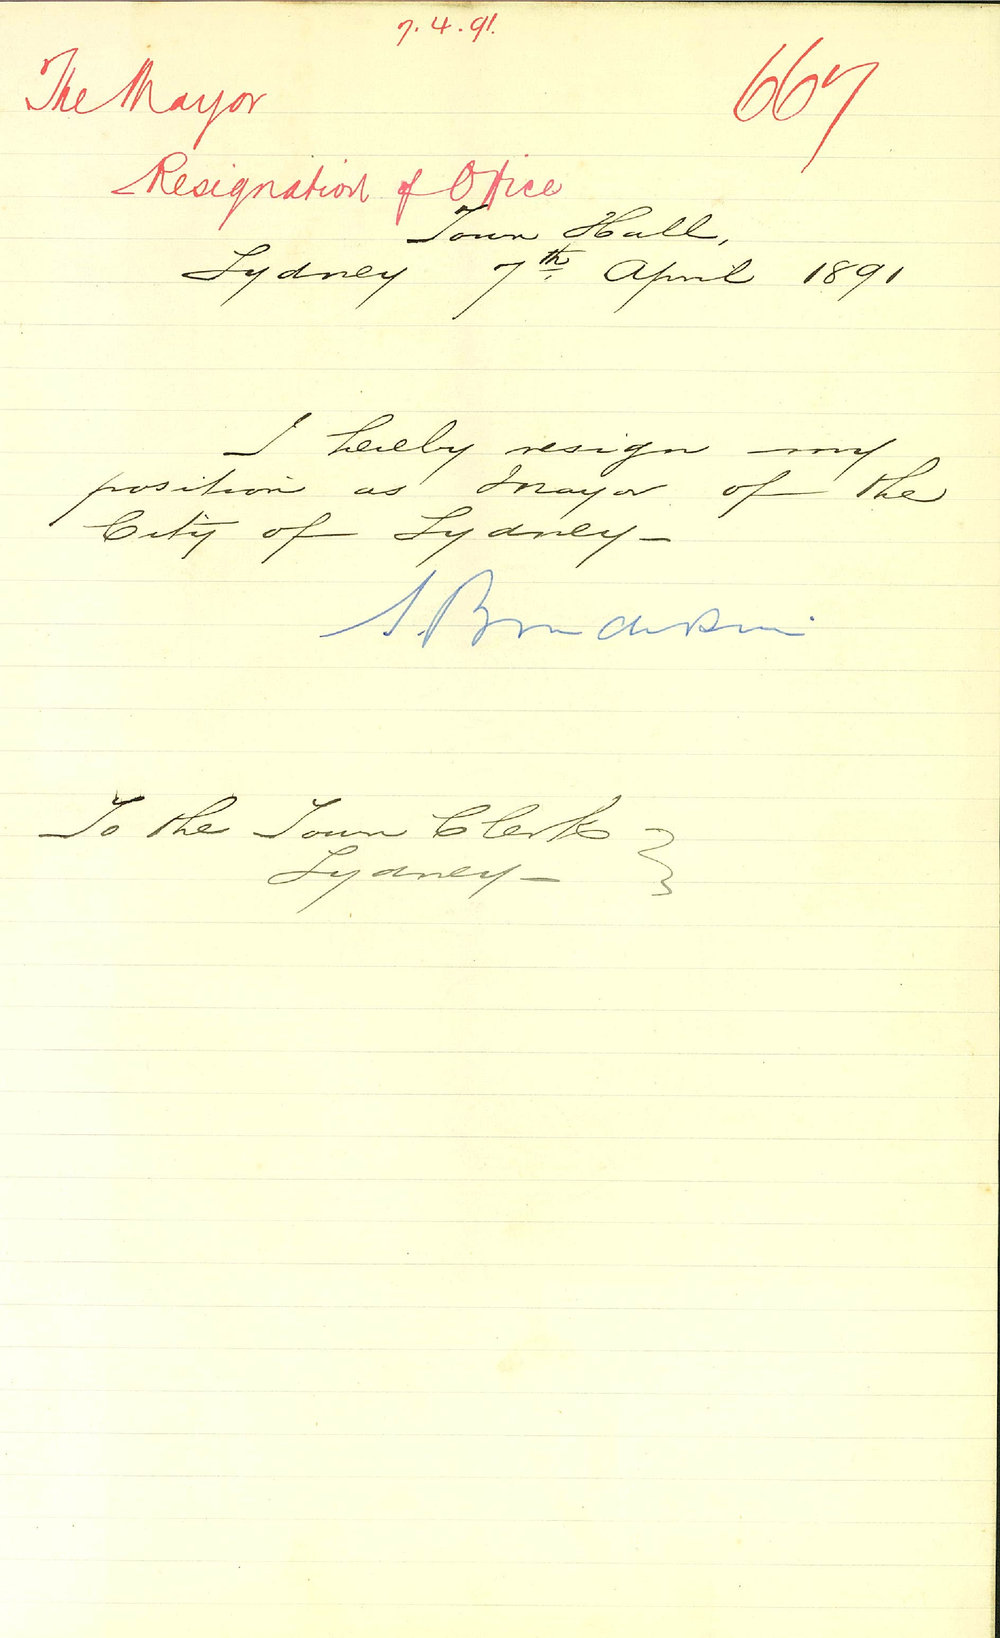 7.4.91.
The Mayor
667
Resignation of Office
Town Hall,
Sydney 7th April 1891
I hereby resign my
position as Mayor of the
City of Sydney—
To the Town Clerk
Sydney—